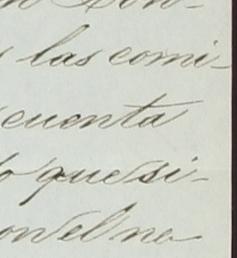 las comi-
cuenta
que si-
on el no